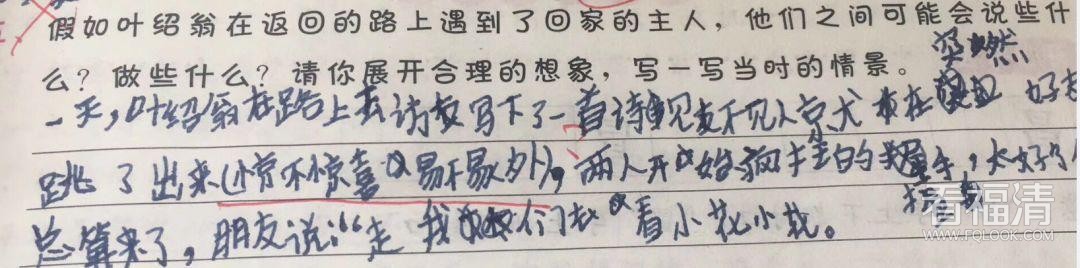 假如叶绍翁在返回的路上遇到了回家的主人，他们之间可能会说些什
么？做些什么？请你展开合理的想象，写一写当时的情景。
突然
一天，叶绍翁在路上去访友写下了一首诗见友不见人 好
跳了出来(惊不惊喜易不易外)，两人开始疯 的握手，太好了
总算来了，朋友说：“走 我们去看小花小花。
看福清
WWW.FQLOOK.COM